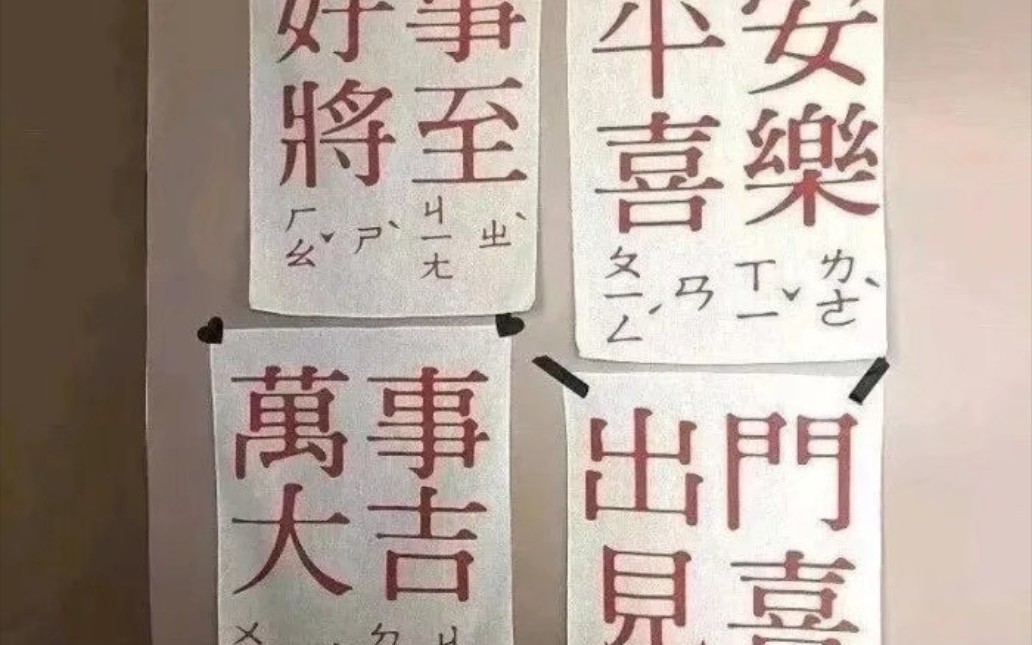 好事
將至
ㄏㄠˇ ㄕˋ ㄐㄧㄤ ㄓˋ
平安
喜樂
ㄆㄧㄥˊ ㄢ ㄒㄧˇ ㄌㄜˋ
萬事
大吉
出門
見喜